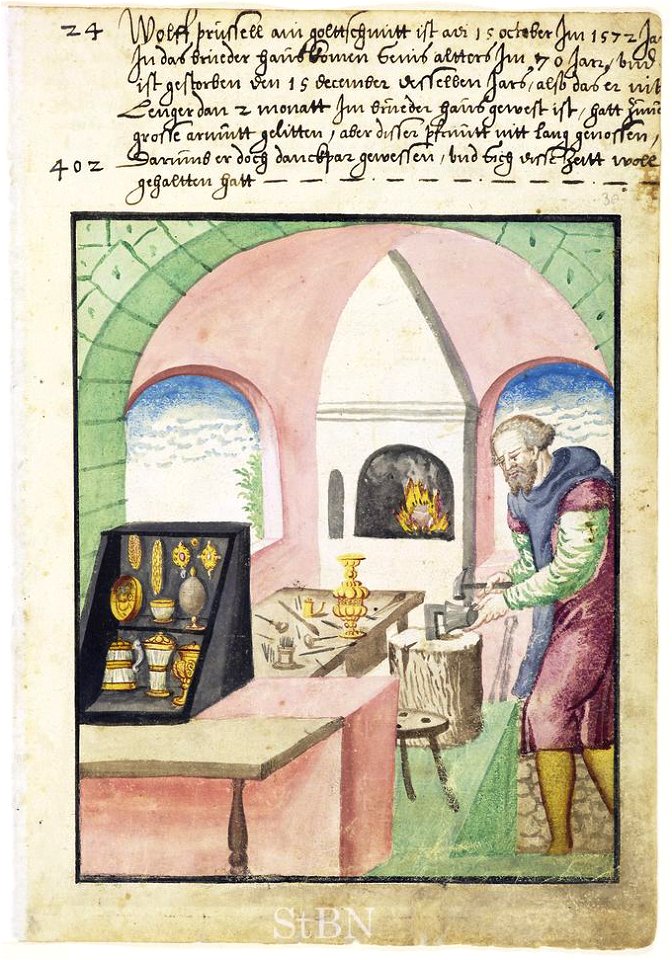 24 Wolff prüssell ain golttschmitt ist adi 15 october Im 1572 Ja
In das brüeder haus komen seins altters Im 70 Jarz, vnd
ist gestorben den 15 december desselben Jars, also das er nit
Lenger dan 2 monatt Im brüeder haus gewest ist, hatt
grosse armütt gelitten, aber disser pfründt nitt lang genossen,
402 Darümb er doch danckpar gewessen, vnd sich disse Zeitt woll
gehaltten hatt
36
StBN